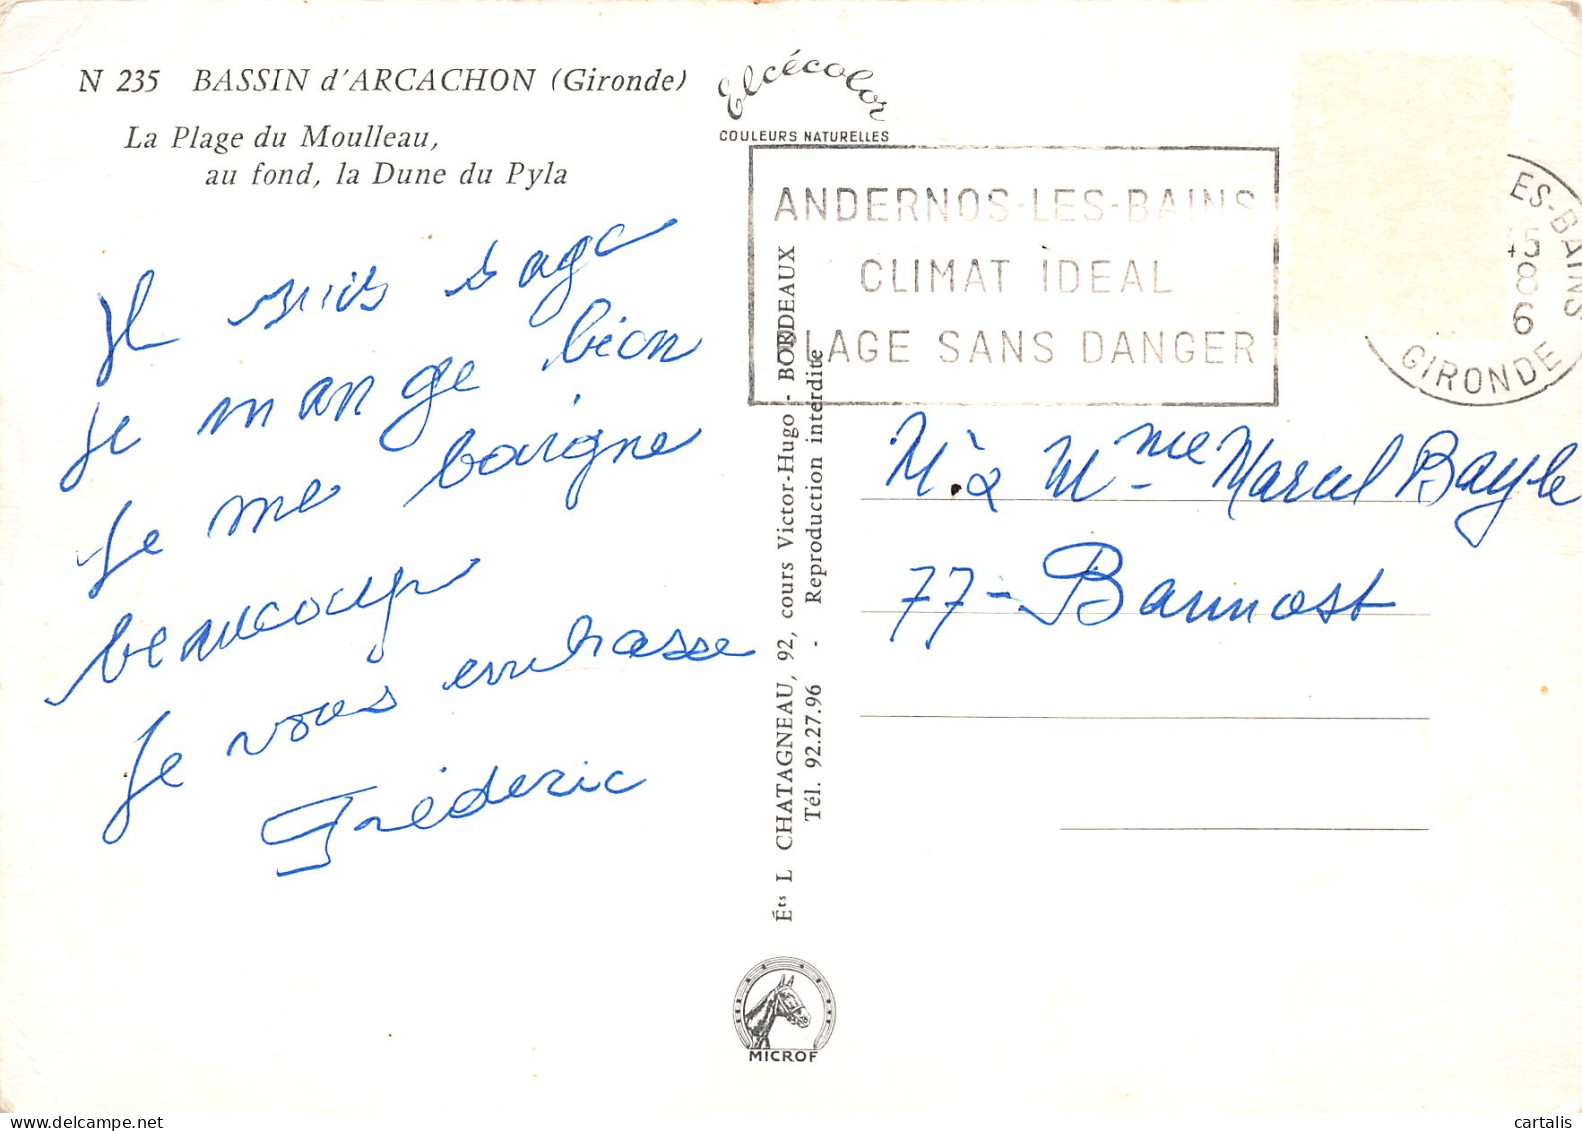 N 235 BASSIN d'ARCACHON (Gironde)
La Plage du Moulleau,
au fond, la Dune du Pyla
Je suis sage
je mange bien
Je me baigne
beaucoup
Je vous embrasse
Fréderic
Elcécolor
COULEURS NATURELLES
ANDERNOS-LES-BAINS
CLIMAT IDEAL
PLAGE SANS DANGER
ES-BAINS
8
6
GIRONDE
Éts L CHATAGNEAU, 92, cours Victor-Hugo - BORDEAUX
Tél. 92.27.96 - Reproduction interdite
MICROF
M. à Mme Marcel Bayle
77 - Bannost
cartalis